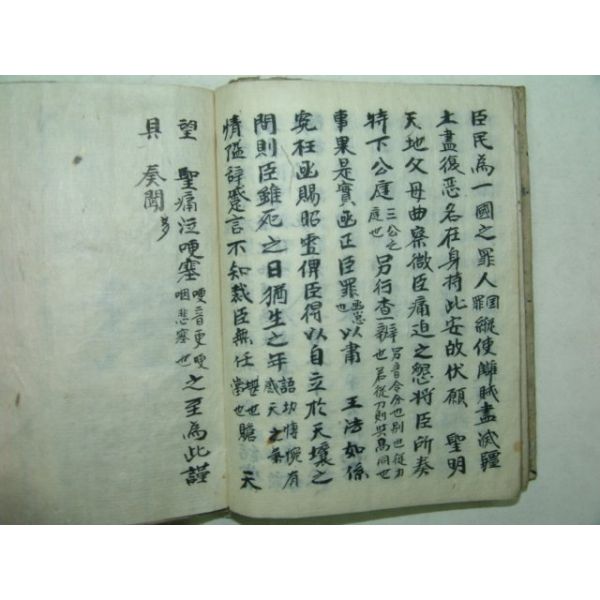 臣民為一國之罪人國罪縱使讎賊盡滅疆
土盡復惡名在身持此安故伏願 聖明
天地父母曲察微臣痛迫之懇將臣所奏
特下公庭三公之庭也另行查辦另音令分也別也從力也若從刀則與為同也
事果是實亟正臣罪以肅 王法如係
冤枉亟賜昭雪俾臣得以自立於天壤之
間則臣雖死之日猶生之年語切博惋有感天之氣
情隘辭蹙言不知裁臣無任堪也當也瞻 天
望 聖痛泣哽塞哽音更哽咽悲塞也之至為此謹
具 奏聞